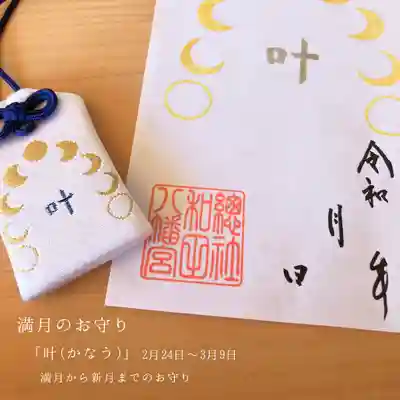 叶
叶
令和 年
月
日
總社
和田
八幡宮
満月のお守り
「叶(かなう)」 2月24日~3月9日
満月から新月までのお守り